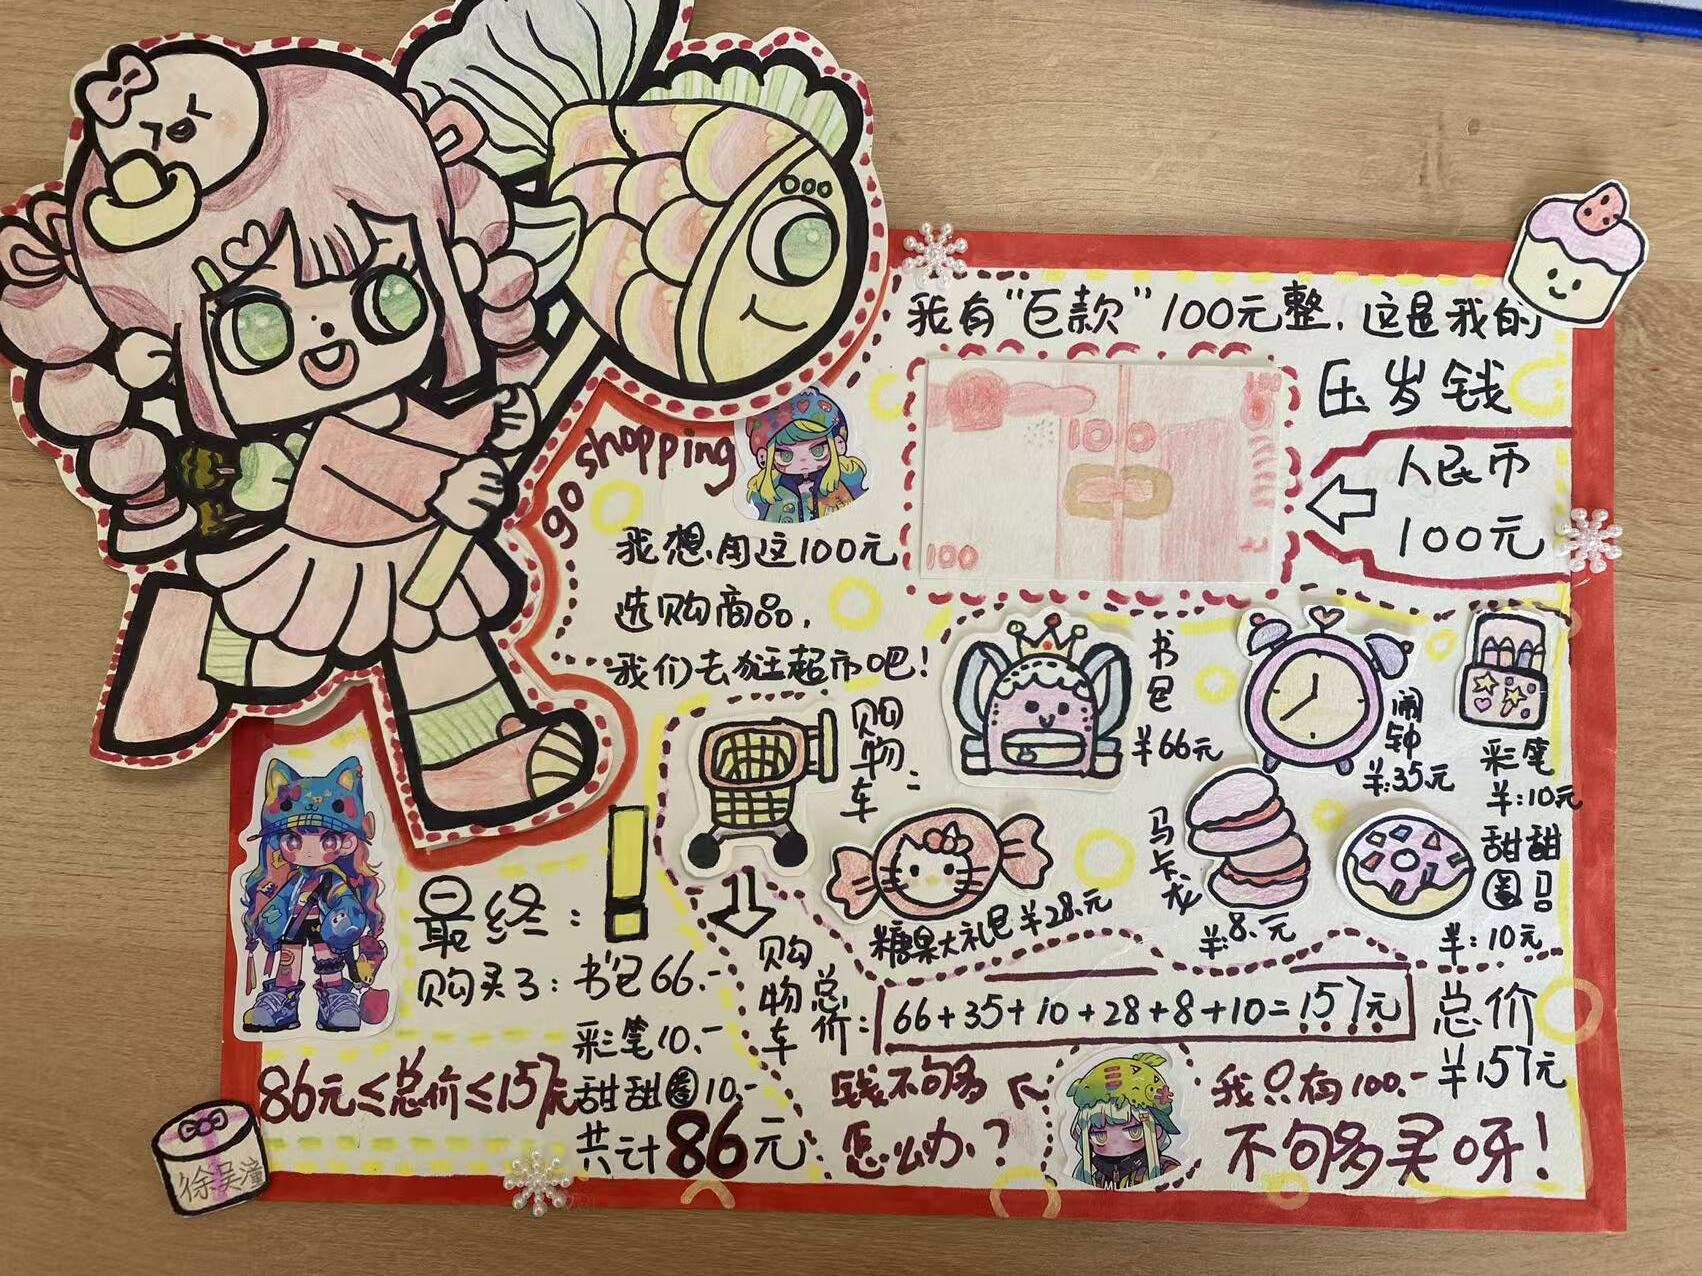 我有“巨款”100元整，这是我的
压岁钱
人民币
100元
100
100
go shopping
我想用这100元
选购商品，
我们去逛超市吧！
购物车：
书包
¥66元
闹钟
¥:35元
彩笔
¥:10元
糖果大礼包¥28.元
马卡龙
¥:8.元
甜甜圈
¥:10元
购物车总价：
66+35+10+28+8+10=157元
总价
¥157元
我只有100.-
不够多买呀！
钱不够多
怎么办？
最终：
购买了：书包66.-
彩笔10.-
甜甜圈10.-
共计86元
86元≤总价≤157元
徐吴潼